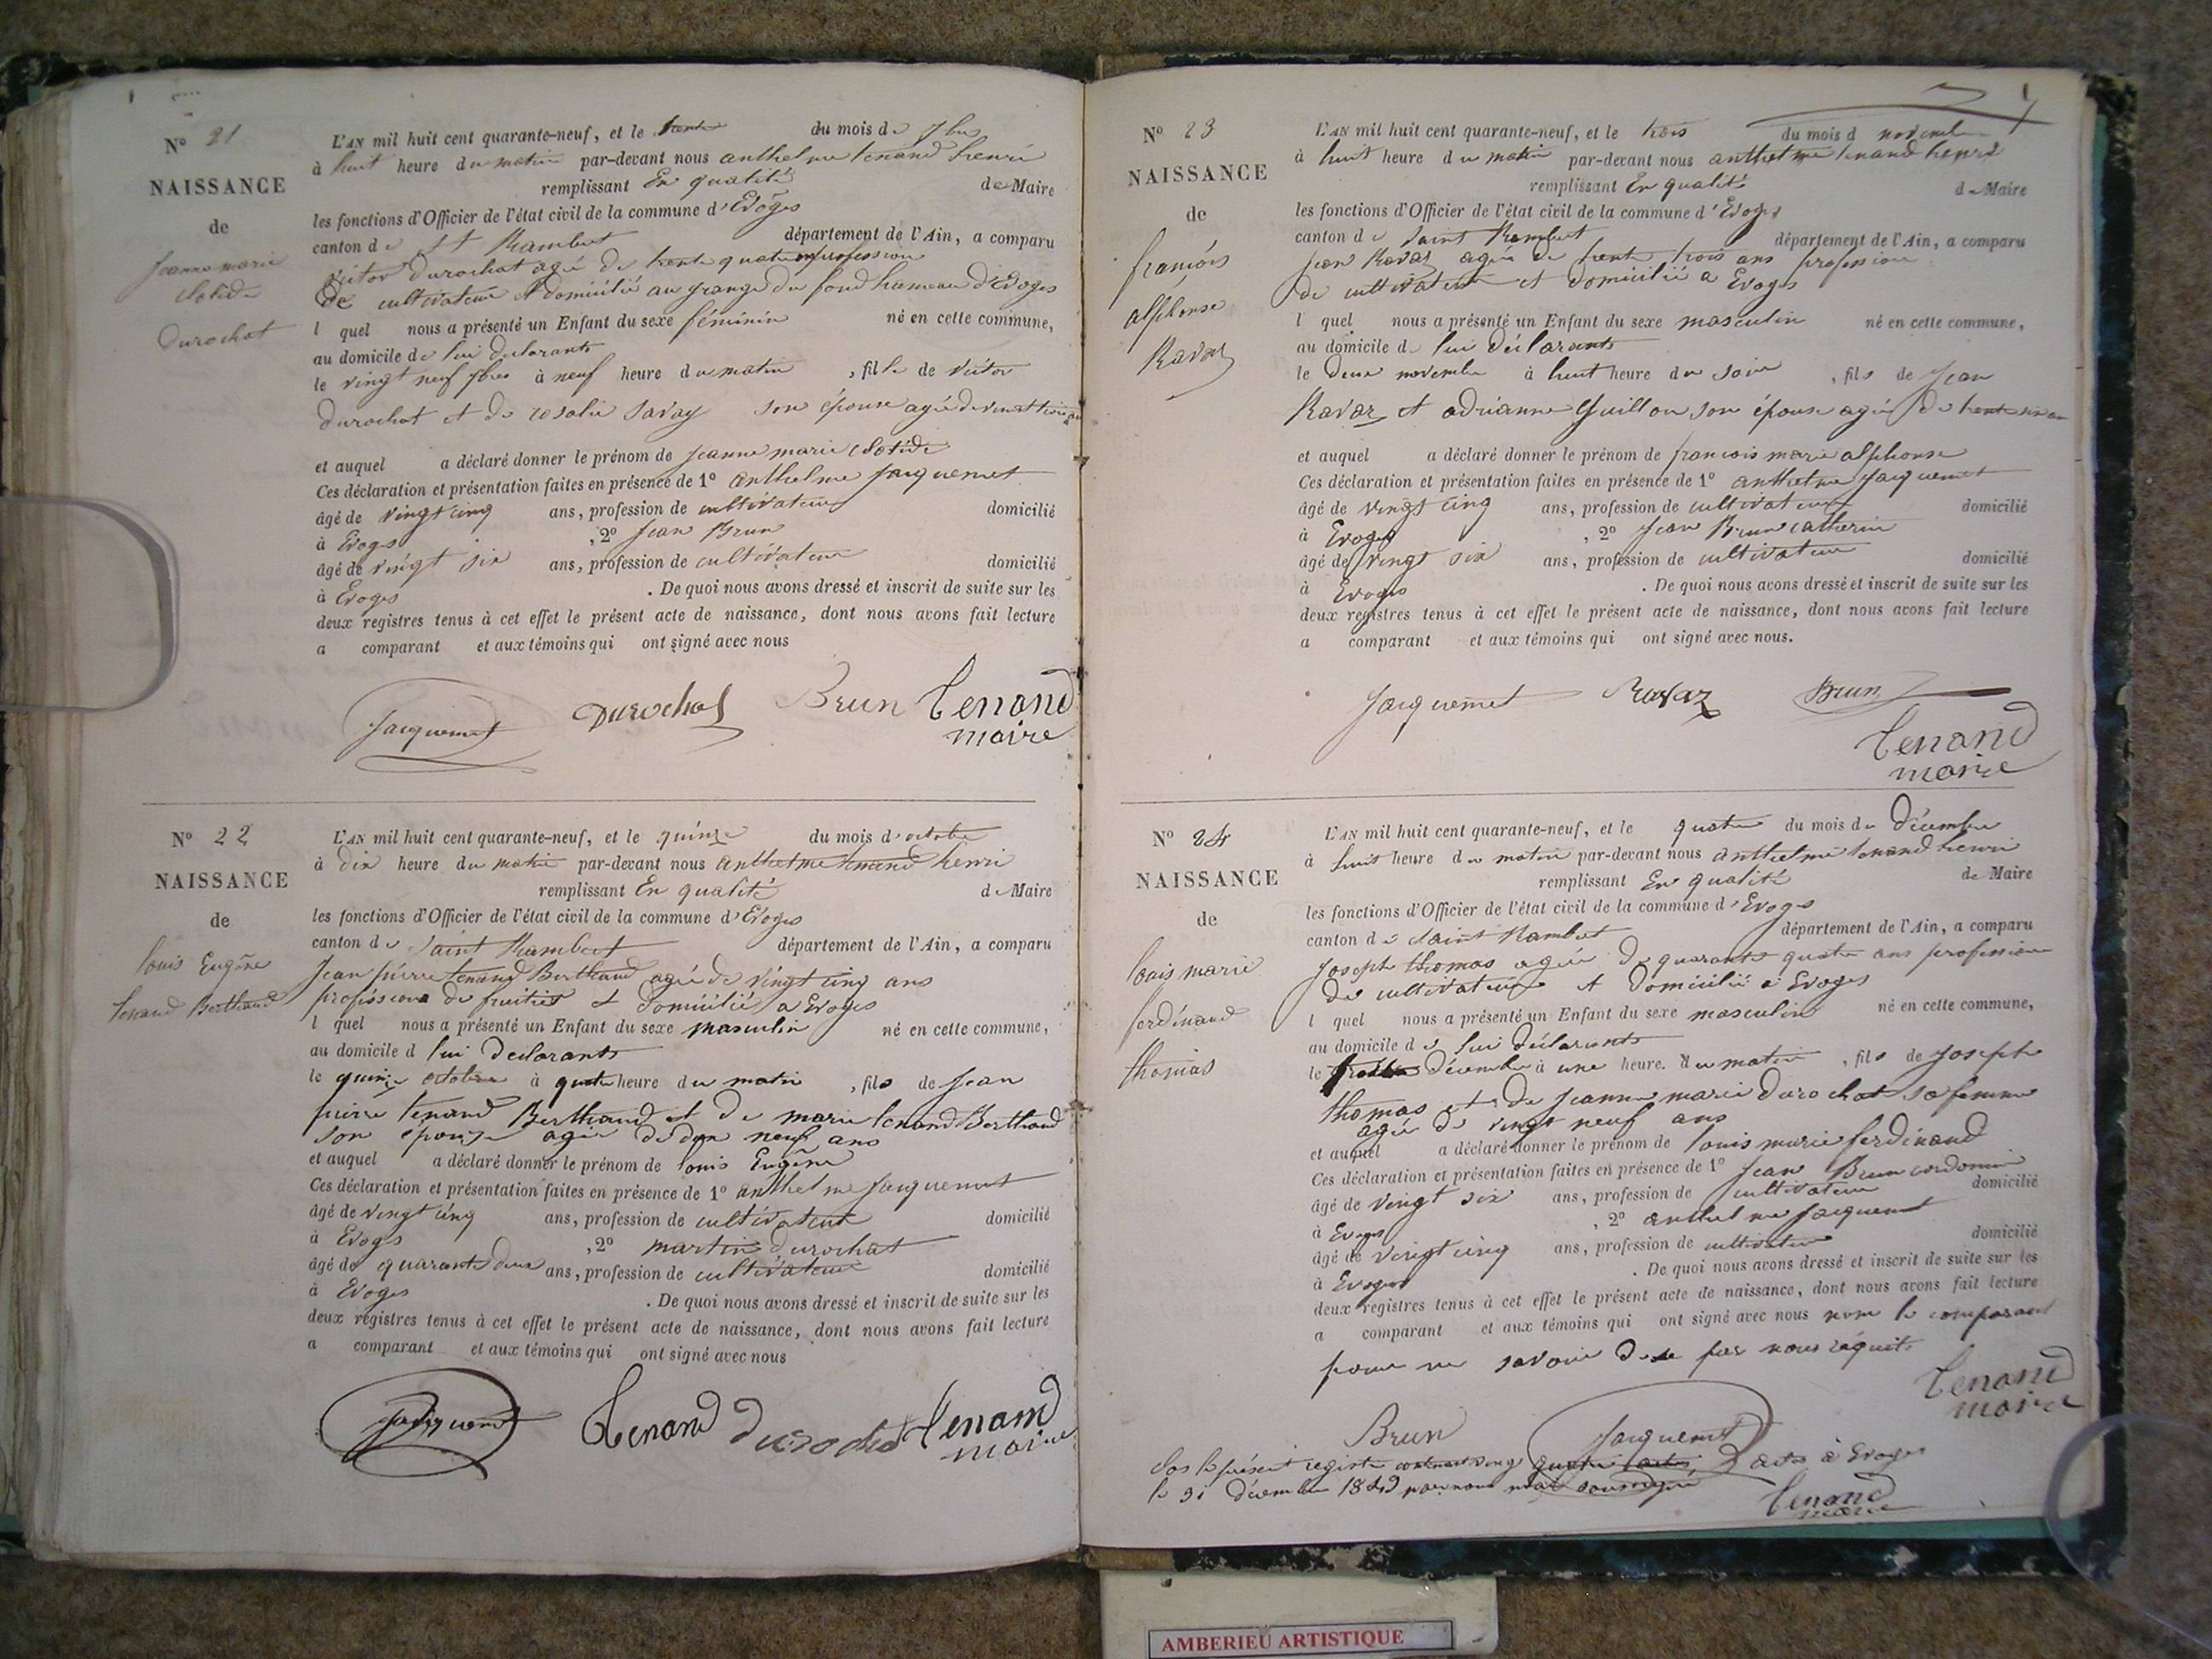 N° 21
NAISSANCE
de
Jeanne marie
Clotide
Durochat
L'AN mil huit cent quarante-neuf, et le trente du mois de 7bre
à huit heure du matin par-devant nous anthelme tenand henri
remplissant En qualité de Maire
les fonctions d'Officier de l'état civil de la commune d'Evoges
canton de St Rambert département de l'Ain, a comparu
Victor Durochat agé de trente quatre profession
de cultivateur et domicilié au grange du fond hameau d'Evoges
l quel nous a présenté un Enfant du sexe féminin né en cette commune,
au domicile de lui declarants
le vingt neuf 7bres à neuf heure du matin , fille de Victor
Durochat et de rosalie Savay son épouse agée de vingt
et auquel a déclaré donner le prénom de Jeanne marie Clotide
Ces déclaration et présentation faites en présence de 1° anthelme Jacquemet
âgé de vingt cinq ans, profession de cultivateur domicilié
à Evoges , 2° Jean Brun
âgé de vingt six ans, profession de cultivateur domicilié
à Evoges . De quoi nous avons dressé et inscrit de suite sur les
deux registres tenus à cet effet le présent acte de naissance, dont nous avons fait lecture
a comparant et aux témoins qui ont signé avec nous
Jacquemet Durochat Brun Tenand
maire
N° 22
NAISSANCE
de
louis Eugêne
tenand Berthand
L'AN mil huit cent quarante-neuf, et le quinze du mois d'octobre
à dix heure du matin par-devant nous anthelme tenand henri
remplissant En qualité de Maire
les fonctions d'Officier de l'état civil de la commune d'Evoges
canton de Saint Rambert département de l'Ain, a comparu
Jean pierre tenand Berthand agé de vingt cinq ans
profession de fruitier et domicilié a Evoges
l quel nous a présenté un Enfant du sexe masculin né en cette commune,
au domicile d lui declarants
le quinze octobre à quatre heure du matin , fils de Jean
pierre tenand Berthand et de marie tenand Berthand
son épouse agée de dix neuf ans
et auquel a déclaré donner le prénom de louis Eugêne
Ces déclaration et présentation faites en présence de 1° anthelme Jacquemet
âgé de vingt cinq ans, profession de cultivateur domicilié
à Evoges , 2° martin durochat
âgé de quarante deux ans, profession de cultivateur domicilié
à Evoges . De quoi nous avons dressé et inscrit de suite sur les
deux registres tenus à cet effet le présent acte de naissance, dont nous avons fait lecture
a comparant et aux témoins qui ont signé avec nous
Jacquemet Tenand durochat Tenand
maire
N° 23
NAISSANCE
de
françois
alphonse
Ravaz
L'AN mil huit cent quarante-neuf, et le trois du mois d novembre
à huit heure du matin par-devant nous anthelme tenand henri
remplissant En qualité de Maire
les fonctions d'Officier de l'état civil de la commune d'Evoges
canton de Saint Rambert département de l'Ain, a comparu
Jean Ravaz agée de trente trois ans profession
de cultivateur et domicilié a Evoges
l quel nous a présenté un Enfant du sexe masculin né en cette commune,
au domicile de lui déclarants
le deux novembre à huit heure du soir , fils de Jean
Ravaz et adrianne Guillon son épouse agée de trente six ans
et auquel a déclaré donner le prénom de francois marie alphonse
Ces déclaration et présentation faites en présence de 1° anthelme Jacquemet
âgé de vingt cinq ans, profession de cultivateur domicilié
à Evoges , 2° Jean Brun catherin
âgé de vingt six ans, profession de cultivateur domicilié
à Evoges . De quoi nous avons dressé et inscrit de suite sur les
deux registres tenus à cet effet le présent acte de naissance, dont nous avons fait lecture
a comparant et aux témoins qui ont signé avec nous.
Jacquemet Ravaz Brun
Tenand
maire
N° 24
NAISSANCE
de
louis marie
ferdinand
thomas
L'AN mil huit cent quarante-neuf, et le quatre du mois de Décembre
à huit heure du matin par-devant nous anthelme tenand henri
remplissant En qualité de Maire
les fonctions d'Officier de l'état civil de la commune d'Evoges
canton de Saint Rambert département de l'Ain, a comparu
Joseph thomas agée de quarante quatre ans profession
de cultivateur et domicilié a Evoges
l quel nous a présenté un Enfant du sexe masculin né en cette commune,
au domicile de lui déclarants
le décembre à une heure du matin , fils de Joseph
thomas et de Jeanne marie Durochat sa femme
agée de vingt neuf ans
et auquel a déclaré donner le prénom de louis marie ferdinand
Ces déclaration et présentation faites en présence de 1° Jean Brun
âgé de vingt six ans, profession de cultivateur domicilié
à Evoges , 2° anthelme Jacquemet
âgé de vingt cinq ans, profession de cultivateur domicilié
à Evoges . De quoi nous avons dressé et inscrit de suite sur les
deux registres tenus à cet effet le présent acte de naissance, dont nous avons fait lecture
a comparant et aux témoins qui ont signé avec nous non le comparant
pour ne savoir de ce par nous réquit
Tenand
maire
Brun Jacquemet
Clos le présent registre contenant vingt quatre actes à Evoges
le 31 décembre 1849 par nous maire soussigné
Tenand
maire
AMBERIEU ARTISTIQUE